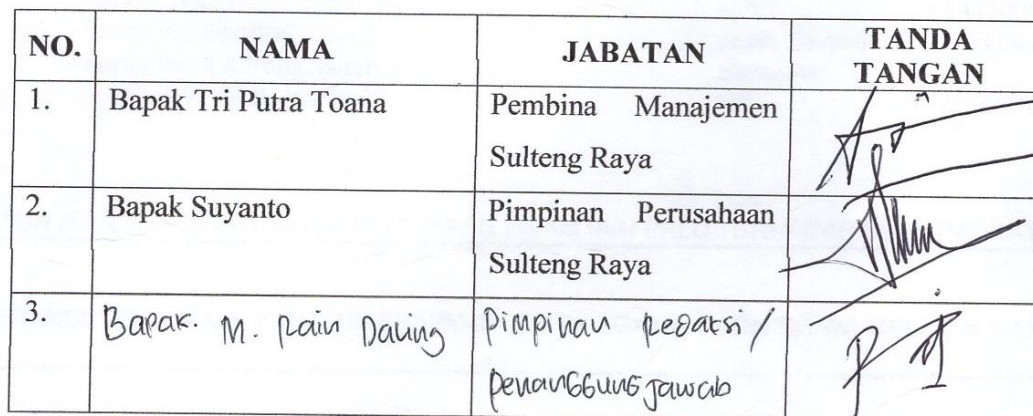 NO. NAMA JABATAN TANDA TANGAN
1. Bapak Tri Putra Toana Pembina Manajemen
Sulteng Raya
2. Bapak Suyanto Pimpinan Perusahaan
Sulteng Raya
3. Bapak. M. Rain Daling Pimpinan Redaksi /
penanggung jawab